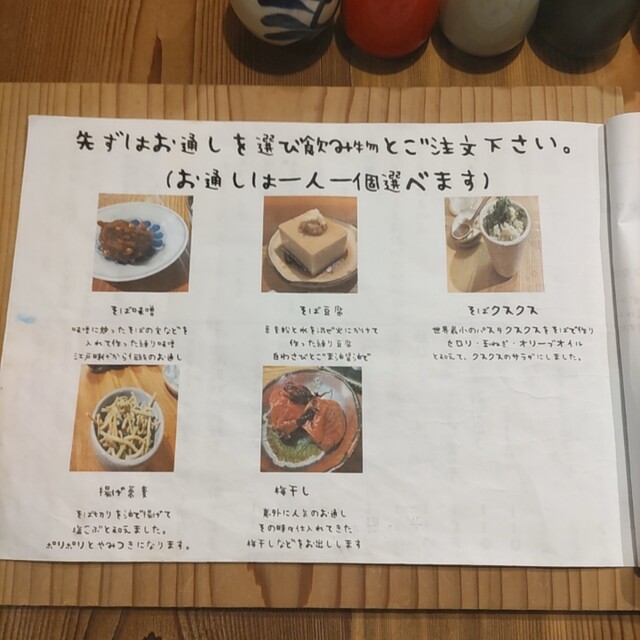 先ずはお通しを選び飲み物とご注文下さい。
(お通しは一人一個選べます)
そば味噌
味噌に炒ったそばの実などを
入れて作った練り味噌
江戸時代から伝統のお通し
そば豆腐
そば粉と水を混ぜ火にかけて
作った練り豆腐
自わさびとごま油醤油で
そばクスクス
世界最小のパスタクスクスをそばで作り
セロリ・玉ねぎ・オリーブオイル
と和えて、クスクスのサラダにしました。
揚げ蕎麦
そば切りを油で揚げて
塩こぶと和えました。
ポリポリとやみつきになります。
梅干し
意外に人気のお通し
その時々仕入れてきた
梅干しなどをお出しします